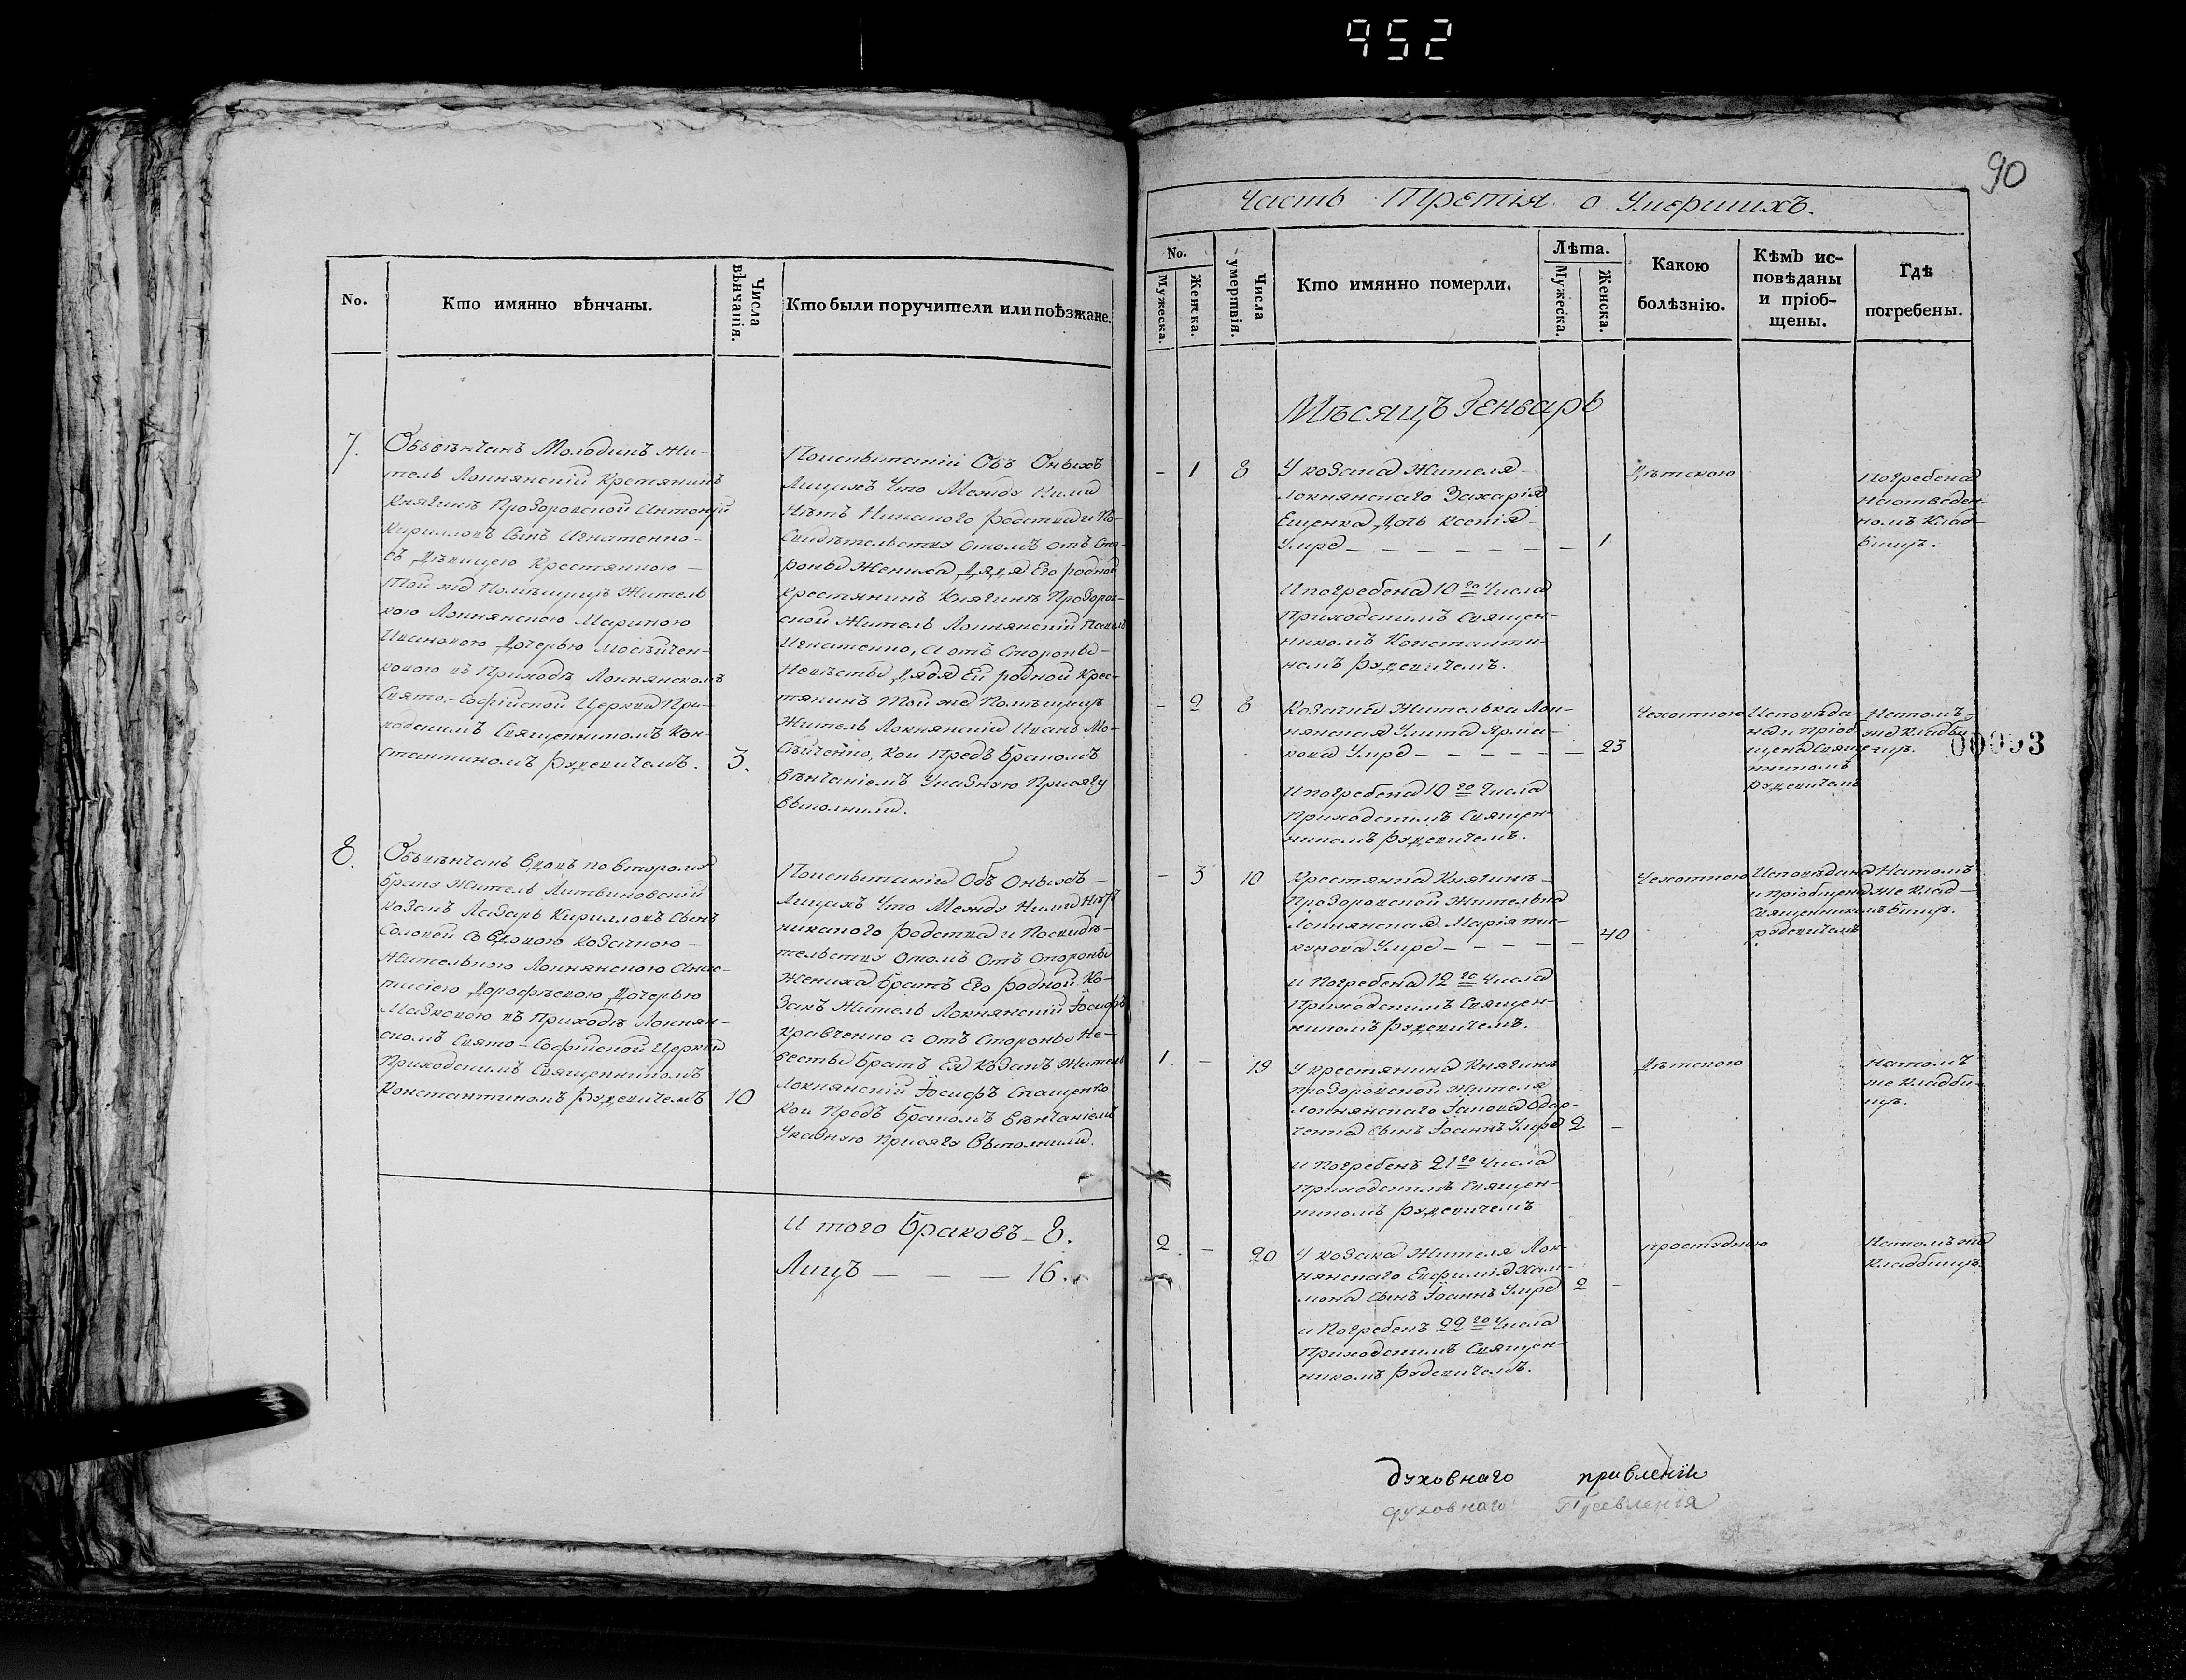 952
No.
Кто имянно вѣнчаны.
Числа вѣнчанія.
Кто были поручители или поѣзжане.
7.
Обвѣнчанъ Молодикъ Жи-
тель Локнянскій Крестянинъ
Княгинѣ Прозоровской Антоній
Кирилловъ Сынъ Игнатенко
съ Дѣвицею Крестянкою –
Той же Помѣщицѣ Житель
кою Локнянскою Мариною
Ивановою Дочерью
въ Приходѣ Локнянскомъ
Свято-Софійской Церкви При-
ходскимъ Священникомъ Кон-
стантиномъ Рудевичемъ.
3.
Поиспытаніи Объ Оныхъ
Лицахъ Что Между Ними
Нѣтъ Никакого родства и По-
Свидѣтельству Отомъ отъ Сто-
роны Жениха Дядя Его родной
крестянинъ Княгинѣ Прозоров-
ской Житель Локнянскій
Игнатенко, а отъ Стороны –
Невѣсты Дядя Ей родной Крес-
тянинъ Той же Помѣщицѣ
Житель Локнянскій Иванъ Мо-
сѣйченко, кои Предъ Бракомъ
вѣнчаніемъ Указную Присягу
Выполнили.
8.
Обвѣнчанъ Вдовъ по второму
браку Житель Литвиновскій
козакъ Лазарь Кирилловъ Сынъ
Соловей Со Вдовою козачкою –
Жителькою Локнянскою Анас-
тасіею Дорофѣевою Дочерью
Мазковою въ Приходѣ Локнян-
скомъ Свято-Софійской Церкви
Приходскимъ Священникомъ
Константиномъ Рудевичемъ
10
Поиспытаніи Объ Оныхъ –
Лицахъ Что Между Ними Нѣтъ
никакого родства и Посвидѣ-
тельству Отомъ Отъ Стороны
Жениха братъ Его родной Ко-
закъ Житель Локнянскій Іосифъ
Кравченко а отъ Стороны Не-
весты братъ Ея Козакъ Житель
Локнянскій Іосифъ Спащенко
Кои Предъ Бракомъ Вѣнчаніемъ
Указную Присягу Выполнили.
И того Браковъ – 8.
Лицъ – – – 16.
90
Часть Третія о Умершихъ.
No.
Мужеска.
Женска.
Числа умертвія.
Кто имянно померли.
Лѣта.
Мужеска.
Женска.
Какою болѣзнію.
Кѣмъ ис-
повѣданы
и пріоб-
щены.
Гдѣ
погребены.
Мѣсяцъ Генварь
– 1 8
У козака Жителя
Локнянскаго Захарія
Ещенка Дочь Ксенія
Умре – – – – – – 1
Ипогребена 10го Числа
Приходскимъ Священ-
никомъ Константи-
номъ Рудевичемъ.
Дѣтскою
Погребена
Наотведен-
номъ Клад-
бищѣ.
– 2 8
Козачка Жителька Лок-
нянская Улита Ярма-
кова Умре – – – – – 23
Ипогребена 10го Числа
Приходскимъ Священ-
никомъ Рудевичемъ.
Чехоткою
Исповѣда-
на и пріоб-
щена Свяще
нникомъ
Рудевичемъ
Натомъ-
же Кладби
щѣ.
00093
– 3 10
Крестянка Княгинѣ –
Прозоровской Жителька
Локнянская Марія
Умре – – – – – 40
и Погребена 12го Числа
Приходскимъ Священ-
никомъ Рудевичемъ.
Чехоткою
Исповѣдана
и пріобщена
Священникомъ
Рудевичемъ
Натомъ
же Клад-
бищѣ.
1 – 19
У Крестянина Княгинѣ
Прозоровской Жителя
Локнянскаго Іякова Одар-
ченка Сынъ Іоаннъ Умре 2 –
и Погребенъ 21го Числа
Приходскимъ Священ-
никомъ Рудевичемъ
Дѣтскою
Натомъ
же Кладби-
щѣ.
2 – 20
У козака Жителя Лок-
нянскаго Евфимія Хал-
мона Сынъ Іоаннъ Умре 2 –
и Погребенъ 22го Числа
Приходскимъ Священ-
никомъ Рудевичемъ.
простудною
Натомъ же
Кладбищѣ.
духовнаго правленія
духовнаго Правленія